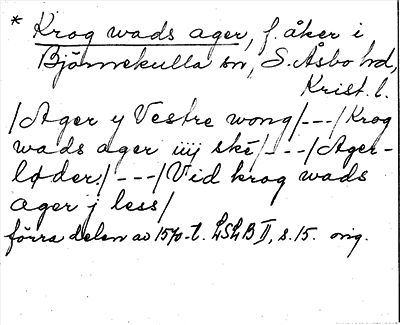 * Krog wads ager, f. åker i
Björnekulla sn, S. Åsbo hd,
Krist. l.
/Ager y Vestre wong/---/Krog
wads ager iiij ske/---/Ager-
løder:/---/Vid krog wads
ager j less/
förra delen av 1570-t. LSLB II, s. 15. orig.